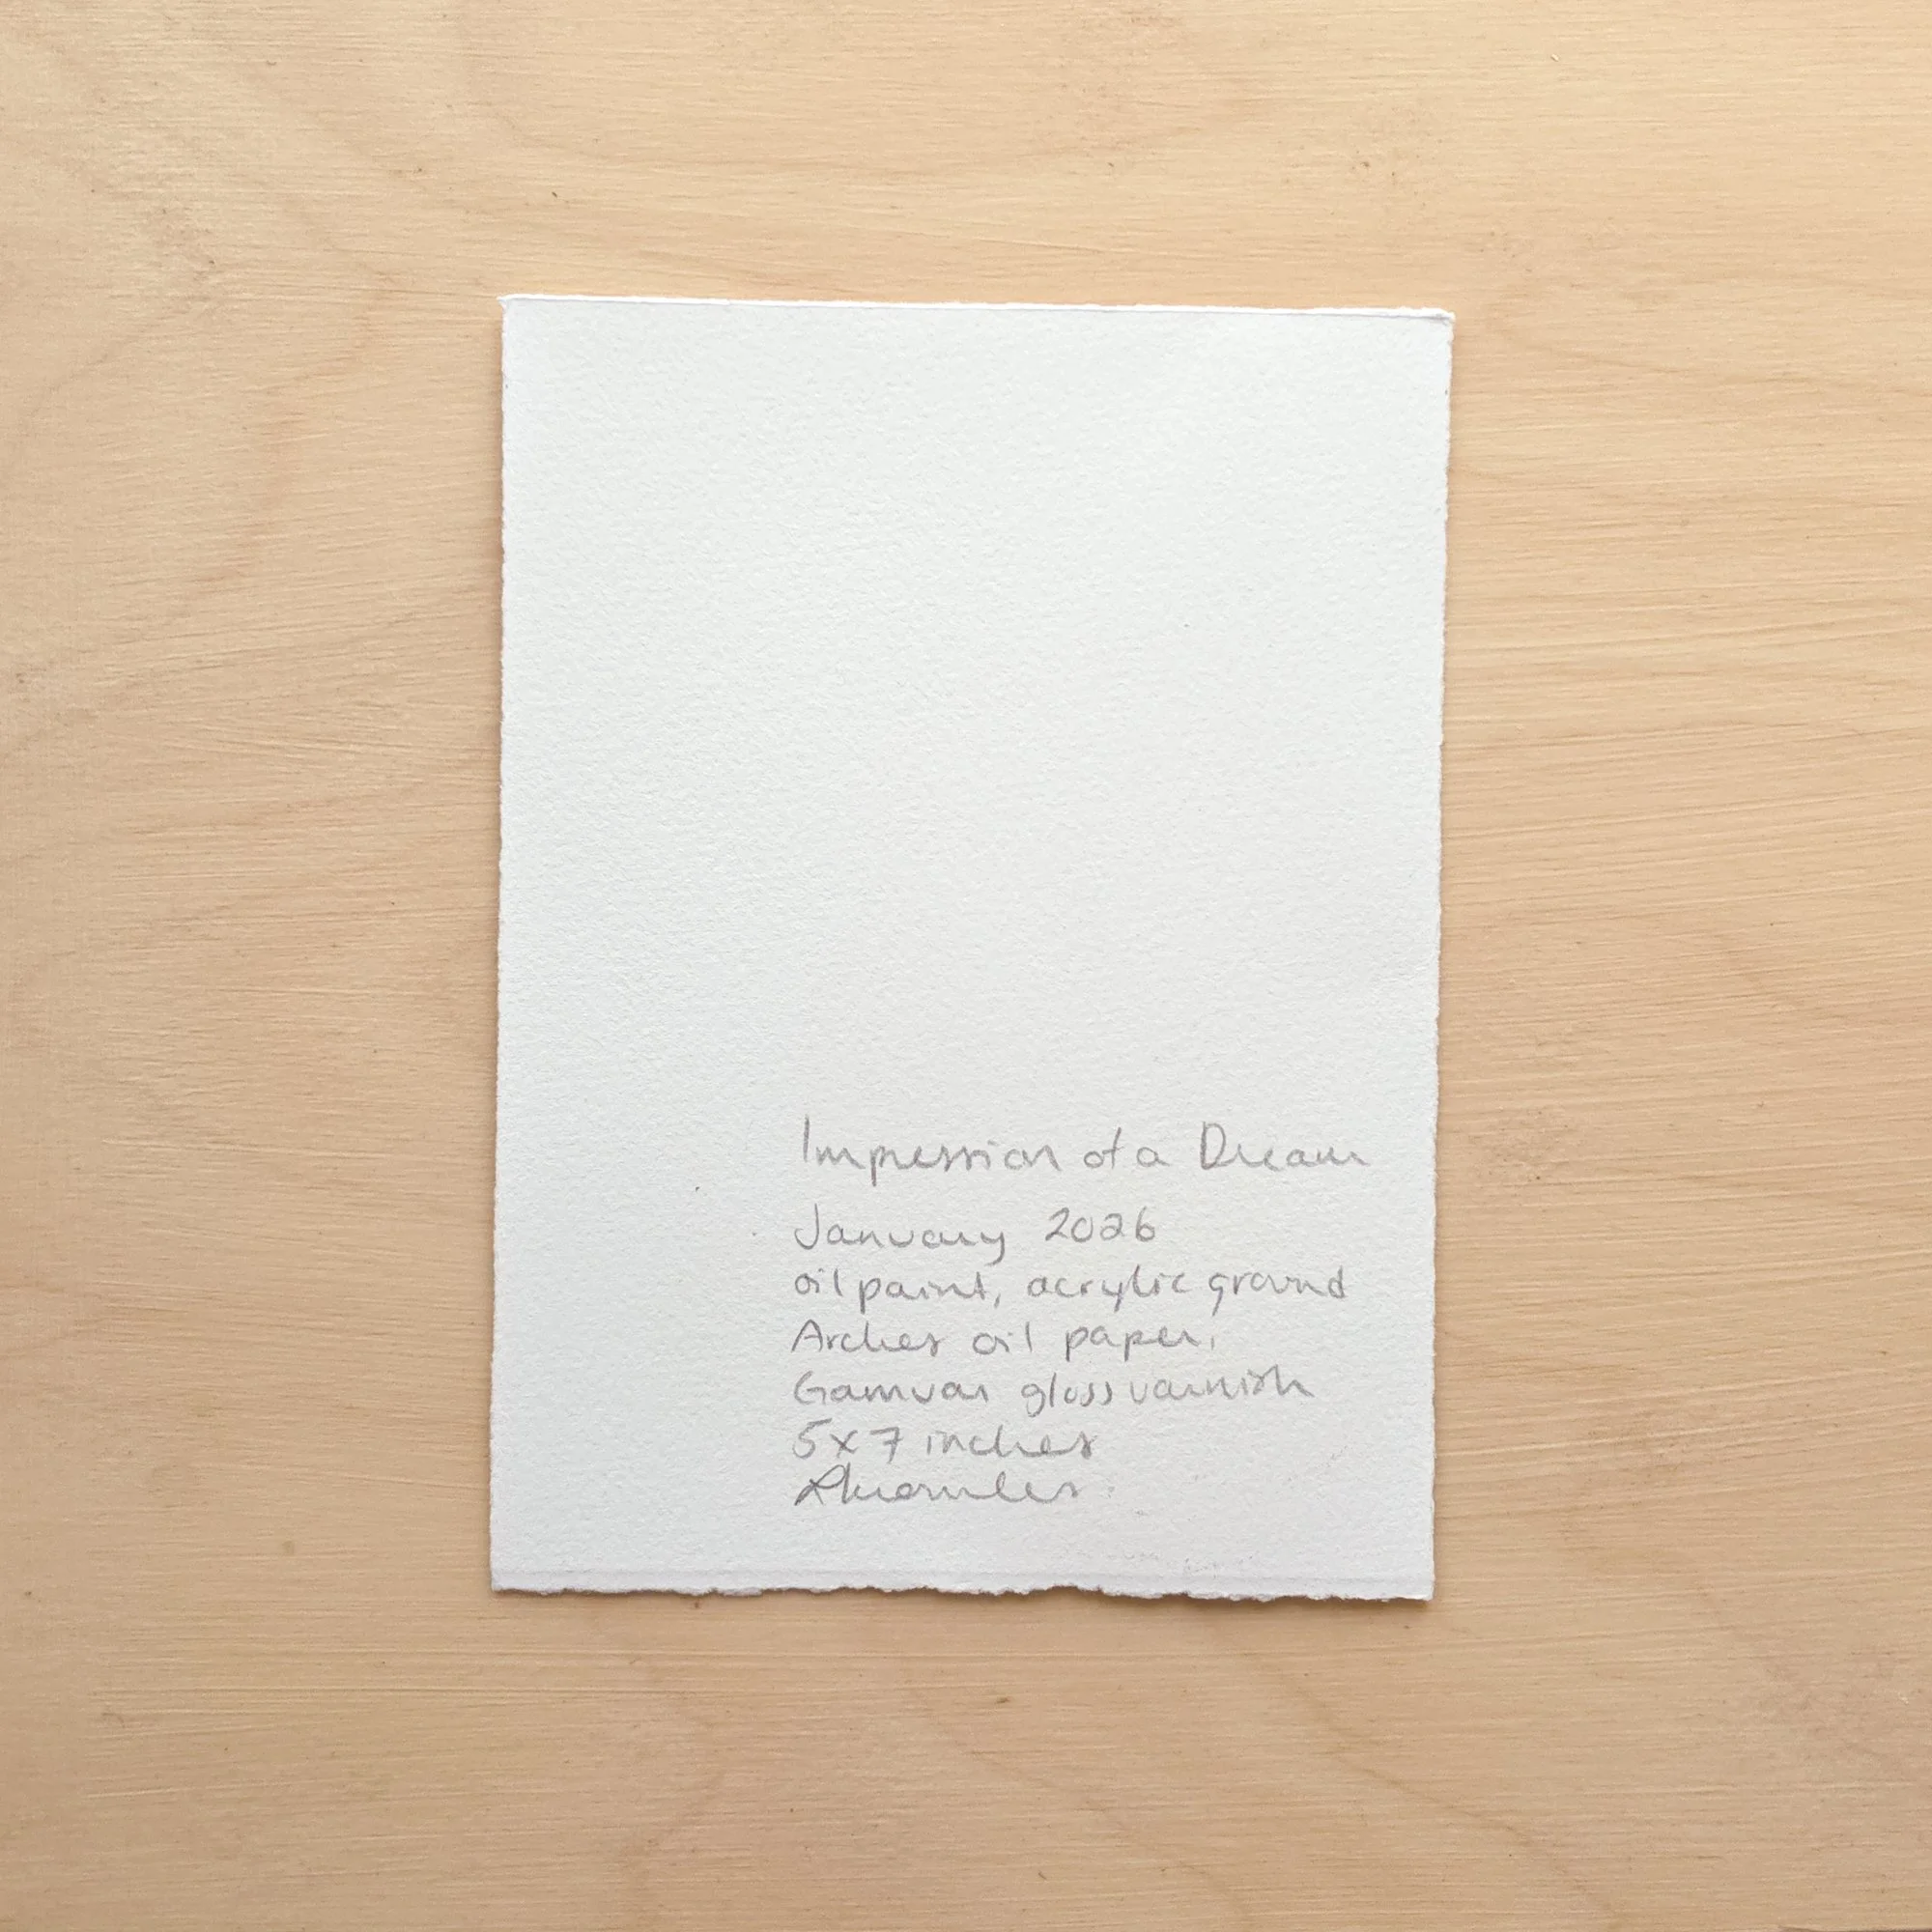 Impression of a Dream
January 2026
oil paint, acrylic ground
Arches oil paper,
Gamvar gloss varnish
5x7 inches